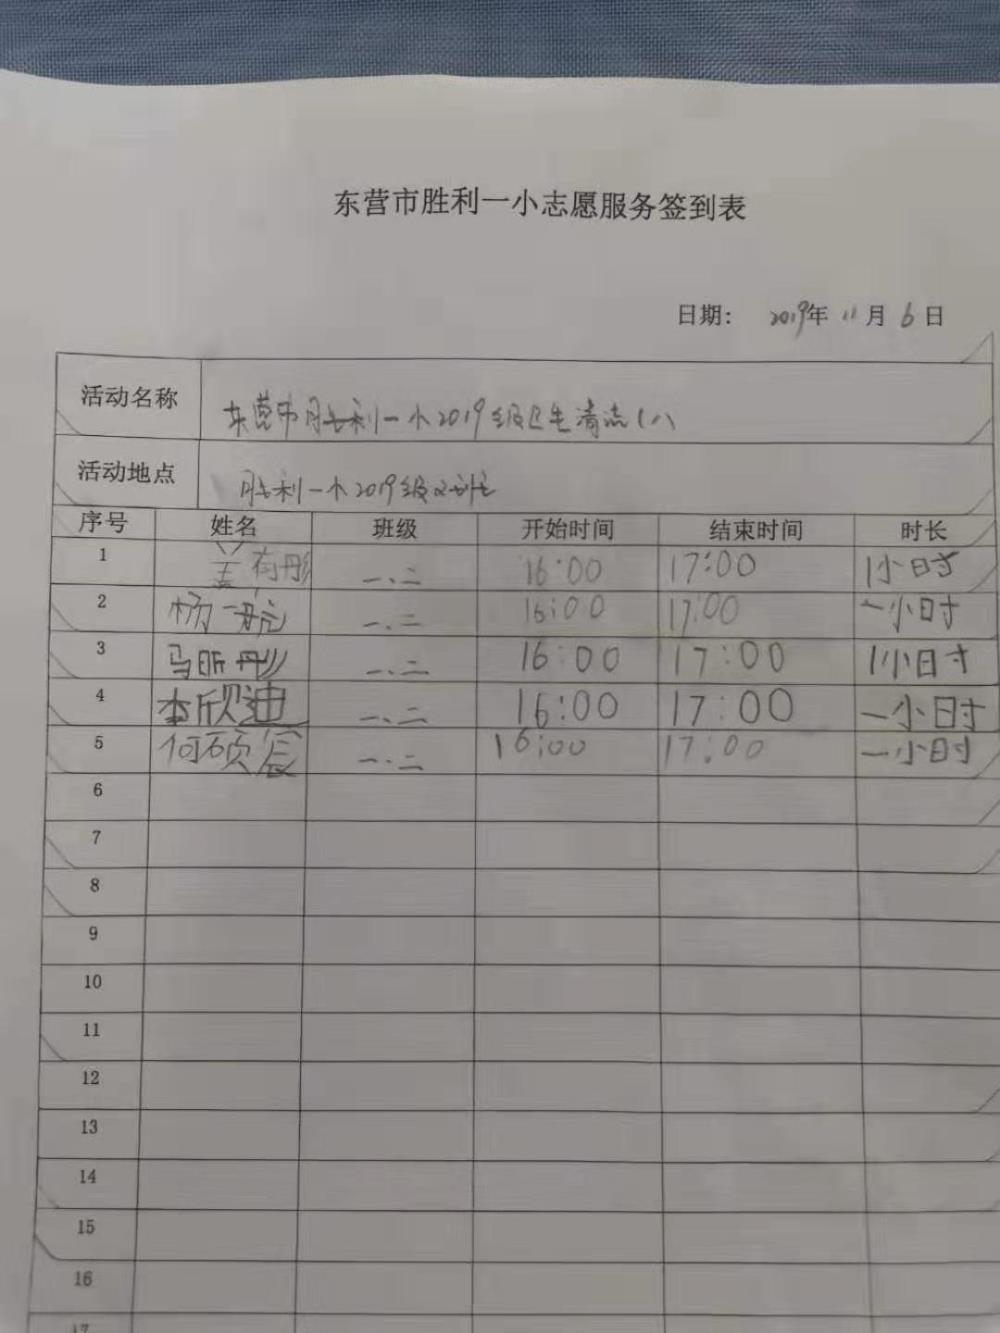 东营市胜利一小志愿服务签到表
日期： 2019年 11月 6日
活动名称 东营市胜利一小2019级卫生清洁(八
活动地点 胜利一小2019级2班
序号 姓名 班级 开始时间 结束时间 时长
1 一.二 16:00 17:00 1小时
2 杨一航 一.二 16:00 17:00 一小时
3 马昕彤 一.二 16:00 17:00 1小时
4 李欣迪 一.二 16:00 17:00 一小时
5 何硕宸 一.二 16:00 17:00 一小时
6
7
8
9
10
11
12
13
14
15
16
17